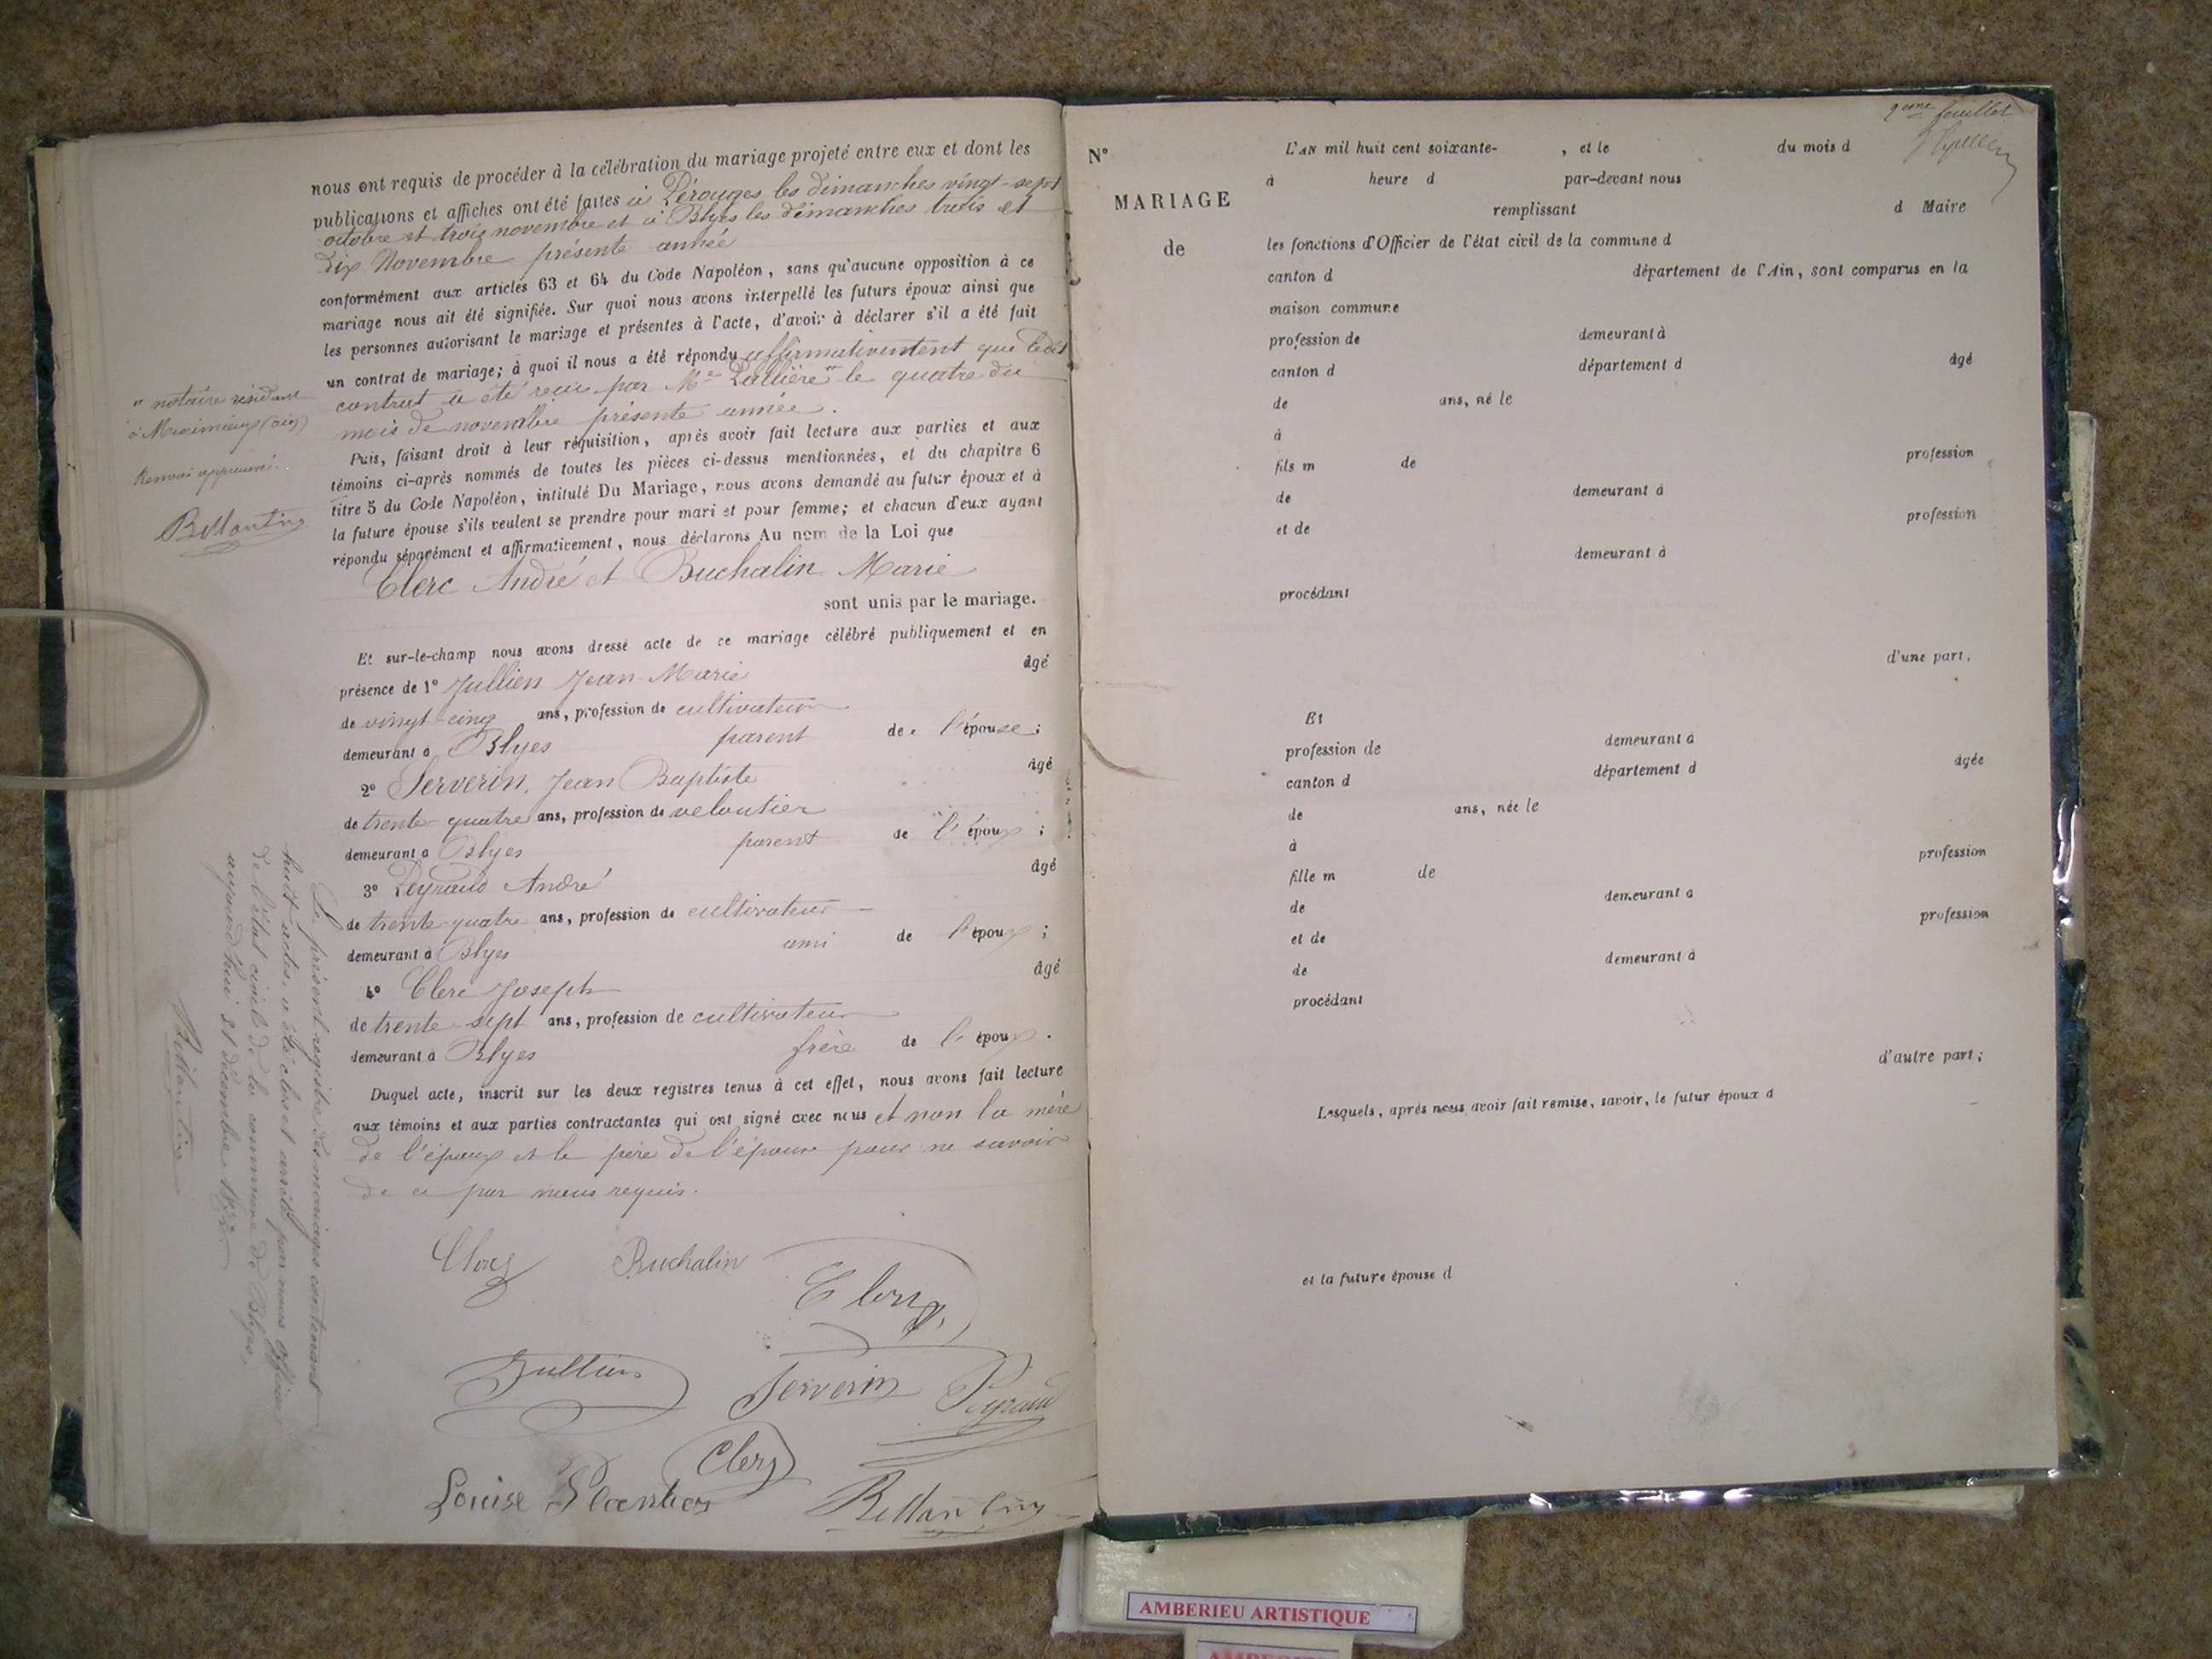 nous ont requis de procéder à la célébration du mariage projeté entre eux et dont les
publications et affiches ont été faites à Pérouges les dimanches vingt-sept
octobre et trois novembre et à Blyes les dimanches trois et
dix Novembre présente année
conformément aux articles 63 et 64 du Code Napoléon, sans qu'aucune opposition à ce
mariage nous ait été signifiée. Sur quoi nous avons interpellé les futurs époux ainsi que
les personnes autorisant le mariage et présentes à l'acte, d'avoir à déclarer s'il a été fait
un contrat de mariage; à quoi il nous a été répondu affirmativement que ledit
contrat a été reçu par Me Lallière " le quatre du
mois de novembre présente année.
" notaire résidant
à Meximieux (ain)
Renvoi approuvé.
Puis, faisant droit à leur réquisition, après avoir fait lecture aux parties et aux
témoins ci-après nommés de toutes les pièces ci-dessus mentionnées, et du chapitre 6
titre 5 du Code Napoléon, intitulé Du Mariage, nous avons demandé au futur époux et à
la future épouse s'ils veulent se prendre pour mari et pour femme; et chacun d'eux ayant
répondu séparément et affirmativement, nous déclarons Au nom de la Loi que
Clerc André et Buchalin Marie
sont unis par le mariage.
Et sur-le-champ nous avons dressé acte de ce mariage célébré publiquement et en
présence de 1° Jullien Jean-Marie âgé
de vingt-cinq ans, profession de cultivateur
demeurant à Blyes parent de l'épouse;
2° Serverin, Jean Baptiste âgé
de trente-quatre ans, profession de veloutier
demeurant à Blyes parent de l'époux;
3° Peyraud André âgé
de trente-quatre ans, profession de cultivateur
demeurant à Blyes ami de l'époux;
4° Clerc Joseph âgé
de trente-sept ans, profession de cultivateur
demeurant à Blyes frère de l'époux.
Duquel acte, inscrit sur les deux registres tenus à cet effet, nous avons fait lecture
aux témoins et aux parties contractantes qui ont signé avec nous et non la mère
de l'époux et le père de l'épouse pour ne savoir
de ce par nous requis.
Clerc Buchalin Clerc
Jullien Serverin Peyraud
Clerc
Louise Plantier
Le présent registre des mariages contenant
huit actes, a été clos et arrêté par nous officier
de l'état civil de la commune de Blyes,
aujourd'hui 31 décembre 1872
2eme feuillet
N°
MARIAGE
de
L'AN mil huit cent soixante- , et le du mois d
à heure d par-devant nous
remplissant d Maire
les fonctions d'Officier de l'état civil de la commune d
canton d département de l'Ain, sont comparus en la
maison commune
profession de demeurant à
canton d département d âgé
de ans, né le
à
fils m de profession
de demeurant à
et de profession
demeurant à
procédant
d'une part.
Et
profession de demeurant à
canton d département d âgée
de ans, née le
à
fille m de profession
de demeurant à
et de profession
de demeurant à
procédant
d'autre part;
Lesquels, après nous avoir fait remise, savoir, le futur époux d
et la future épouse d
AMBERIEU ARTISTIQUE